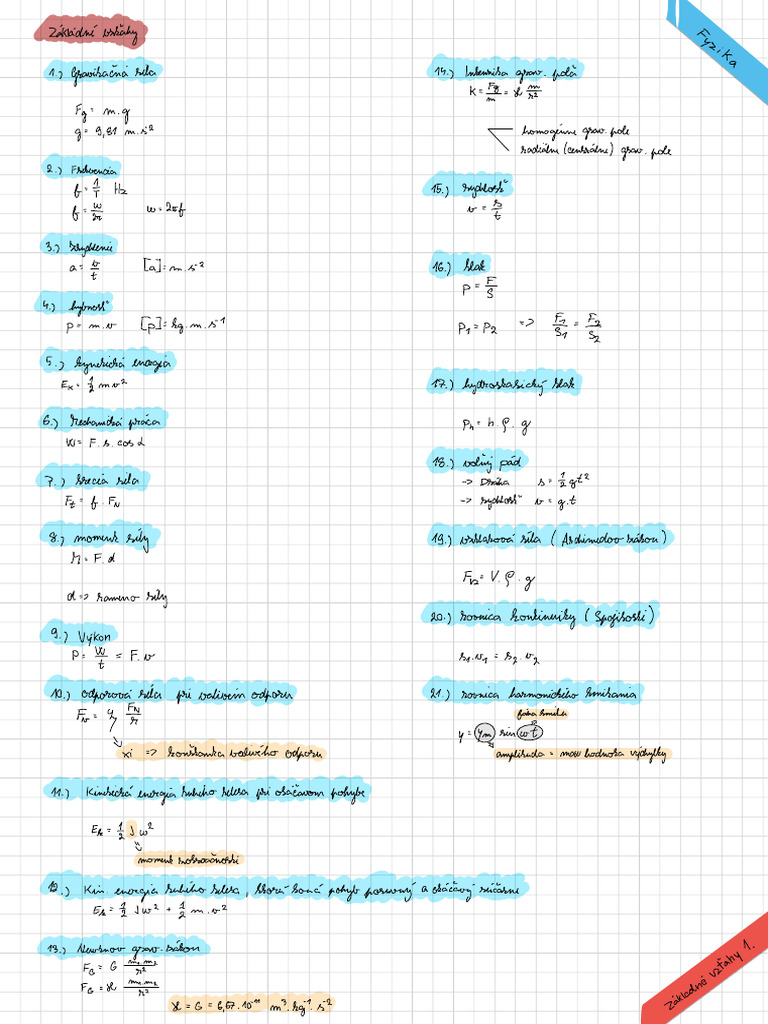 Základné vzťahy
Fyzika
1.) Gravitačná sila
Fg = m.g
g = 9,81 m.s⁻²
2.) Frekvencia
f = 1/T Hz
f = ω/2π ω = 2πf
3.) Zrýchlenie
a = v/t [a] = m.s⁻²
4.) hybnosť
p = m.v [p] = kg.m.s⁻¹
5.) kynetická energia
Ek = 1/2 mv²
6.) Mechanická práca
W = F.s.cos α
7.) trecia sila
Ft = f.FN
8.) moment sily
M = F.d
d => rameno sily
9.) Výkon
P = W/t = F.v
10.) odporová sila pri valivom odporu
Fv = ξ FN/r
xi => konštanta valivého odporu
11.) Kinetická energia tuhého telesa pri otáčavom pohybe
Ek = 1/2 Jω²
moment zotrvačnosti
12.) Kin. energia tuhého telesa, ktoré koná pohyb posuvný a otáčavý súčasne
Ek = 1/2 Jω² + 1/2 m.v²
13.) Newtnov grav. zákon
FG = G m₁.m₂/r²
FG = ϰ m₁.m₂/r²
ϰ = G = 6,67.10⁻¹¹ m³.kg⁻¹.s⁻²
14.) Intenzita grav. poľa
K = Fg/m = ϰ m/r²
homogénne grav. pole
radiálne (centrálne) grav. pole
15.) rýchlosť
v = s/t
16.) tlak
p = F/S
p₁ = p₂ => F₁/S₁ = F₂/S₂
17.) hydrostatický tlak
ph = h.ρ.g
18.) voľný pád
-> Dráha s = 1/2 gt²
-> rýchlosť v = g.t
19.) vztlaková sila (Archimedov zákon)
Fvz = V.ρ.g
20.) rovnica kontinuity (Spojitosti)
s₁.v₁ = s₂.v₂
21.) rovnica harmonického kmitania
fáza kmitu
y = ym sin ωt
amplitúda = max hodnota výchylky
Základné vzťahy 1.